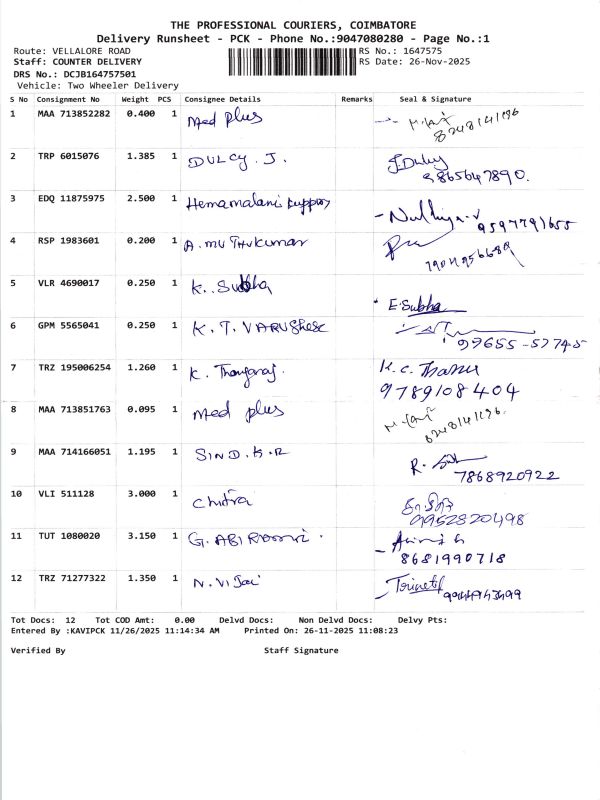 THE PROFESSIONAL COURIERS, COIMBATORE
Delivery Runsheet - PCK - Phone No.:9047080280 - Page No.:1
Route: VELLALORE ROAD
RS No.: 1647575
Staff: COUNTER DELIVERY
RS Date: 26-Nov-2025
DRS No.: DCJB164757501
Vehicle: Two Wheeler Delivery
S No Consignment No Weight PCS Consignee Details Remarks Seal & Signature
1 MAA 713852282 0.400 1 Med plus
8248141196
2 TRP 6015076 1.385 1 DULCY. J. J.Dulcy
9865647890.
3 EDQ 11875975 2.500 1 Hemamalani
9597791655
4 RSP 1983601 0.200 1 A. MUTHUKUMAR
5 VLR 4690017 0.250 1 K. Subha
E.Subha
6 GPM 5565041 0.250 1 K. T. VARUGHESE
99655-57745
7 TRZ 195006254 1.260 1 K. Thangaraj K.C.
9789108404
8 MAA 713851763 0.095 1 Med plus
9 MAA 714166051 1.195 1 R.
7868920922
10 VLI 511128 3.000 1 Chitra
சித்ரா
9952820498
11 TUT 1080020 3.150 1 G. ABIRAMI.
8681990718
12 TRZ 71277322 1.350 1 N. Vijai
Tot Docs: 12 Tot COD Amt: 0.00 Delvd Docs: Non Delvd Docs: Delvy Pts:
Entered By :KAVIPCK 11/26/2025 11:14:34 AM Printed On: 26-11-2025 11:08:23
Verified By Staff Signature